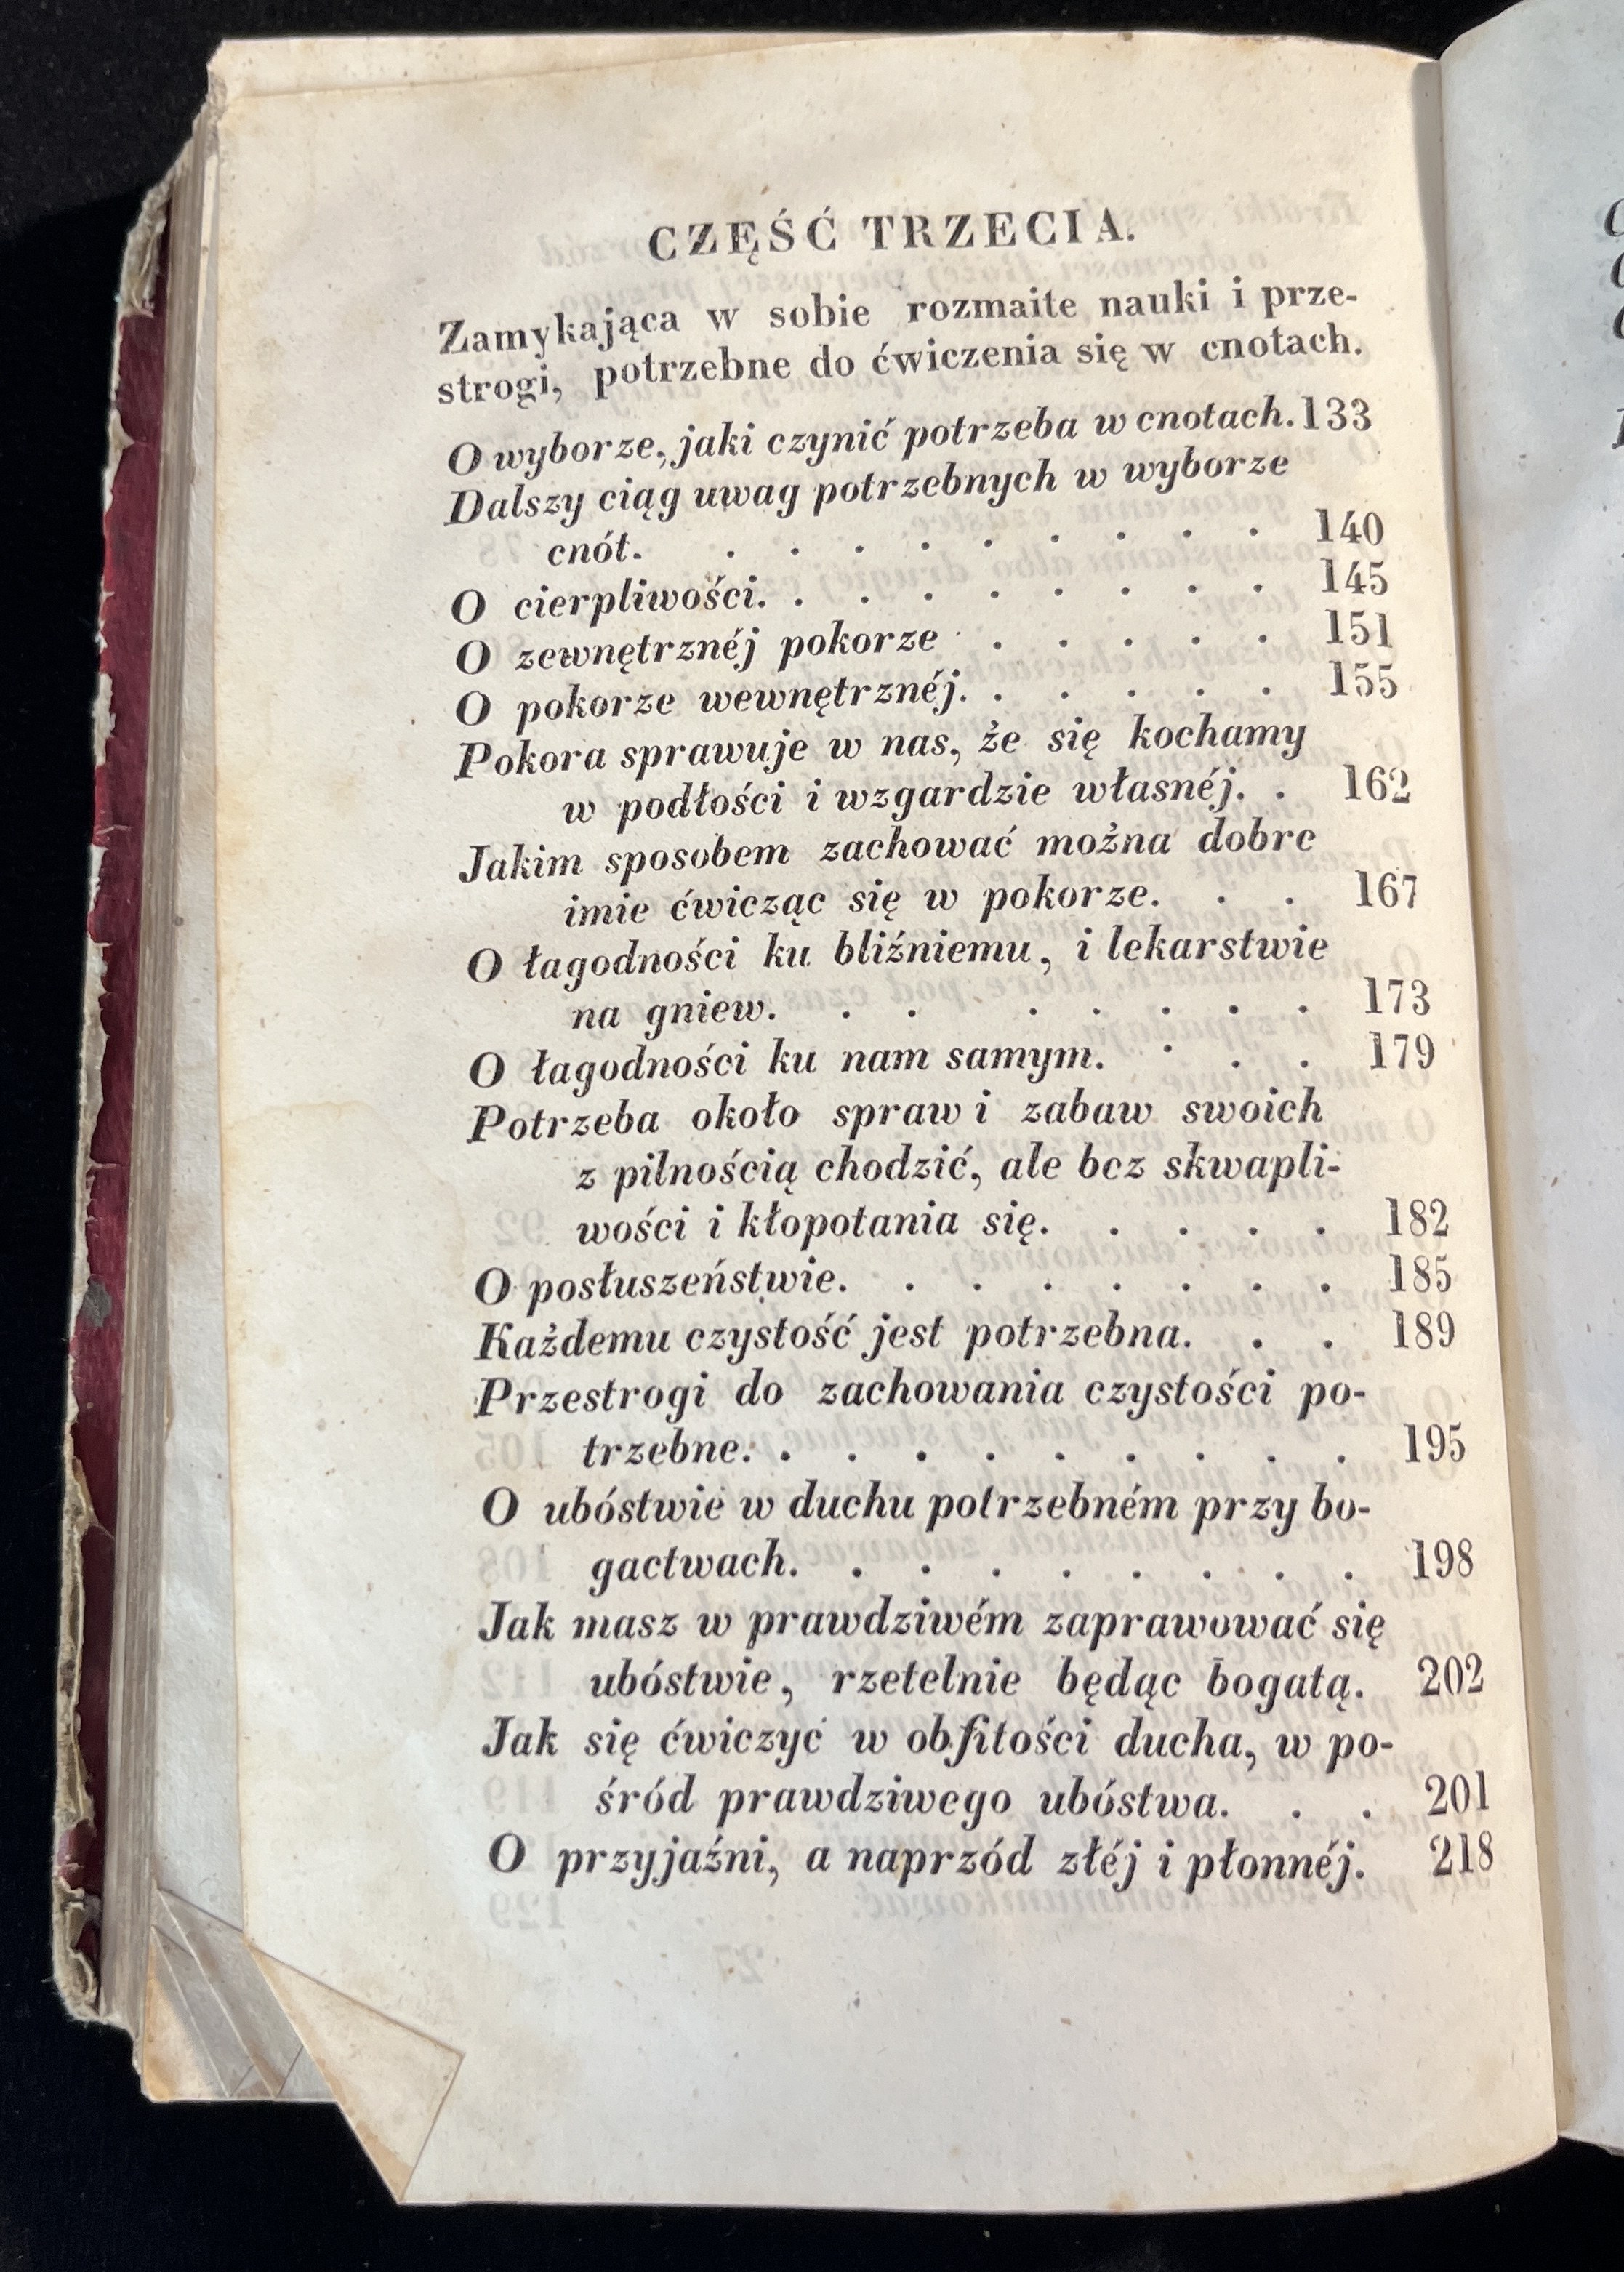 CZĘŚĆ TRZECIA.
Zamykająca w sobie rozmaite nauki i prze-
strogi, potrzebne do ćwiczenia się w cnotach.
O wyborze, jaki czynić potrzeba w cnotach. 133
Dalszy ciąg uwag potrzebnych w wyborze
cnót. . . . . . . . . . 140
O cierpliwości. . . . . . . . . 145
O zewnętrznéj pokorze . . . . . . 151
O pokorze wewnętrznéj. . . . . . 155
Pokora sprawuje w nas, że się kochamy
w podłości i wzgardzie własnéj. . 162
Jakim sposobem zachować można dobre
imie ćwicząc się w pokorze. . . 167
O łagodności ku bliźniemu, i lekarstwie
na gniew. . . . . . . . 173
O łagodności ku nam samym. . . . 179
Potrzeba około spraw i zabaw swoich
z pilnością chodzić, ale bez skwapli-
wości i kłopotania się. . . . . 182
O posłuszeństwie. . . . . . . . 185
Każdemu czystość jest potrzebna. . . 189
Przestrogi do zachowania czystości po-
trzebne. . . . . . . . . . 195
O ubóstwie w duchu potrzebném przy bo-
gactwach. . . . . . . . . 198
Jak masz w prawdziwém zaprawować się
ubóstwie, rzetelnie będąc bogatą. 202
Jak się ćwiczyć w obfitości ducha, w po-
śród prawdziwego ubóstwa. . . 201
O przyjaźni, a naprzód złéj i płonnéj. 218